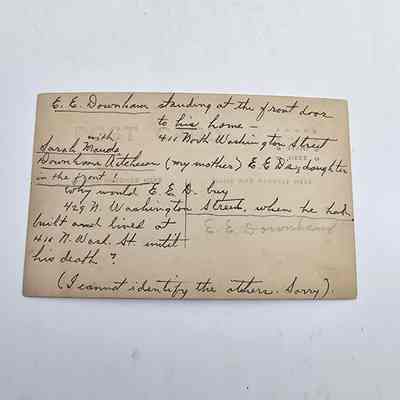 E. E. Downham standing at the front door
to his home —
411 North Washington Street
with
Sarah Maude
Downham Aitcheson (my mother) E E D's daughter
in the front!
Why would E. E. D. buy
429 N. Washington Street, when he had
built and lived at
411 N. Wash. St until
his death?
E. E. Downham
(I cannot identify the others. Sorry).